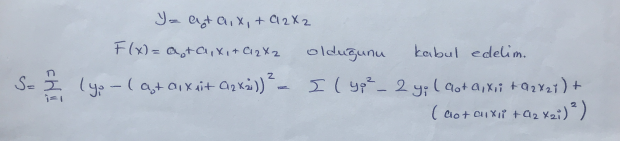 y = a₀ + a₁x₁ + a₂x₂
F(x) = a₀ + a₁x₁ + a₂x₂ olduğunu kabul edelim.
S = Σᵢ₌₁ⁿ (yᵢ - (a₀ + a₁x₁ᵢ + a₂x₂ᵢ))² = Σ (yᵢ² - 2yᵢ(a₀ + a₁x₁ᵢ + a₂x₂ᵢ) +
(a₀ + a₁x₁ᵢ + a₂x₂ᵢ)²)